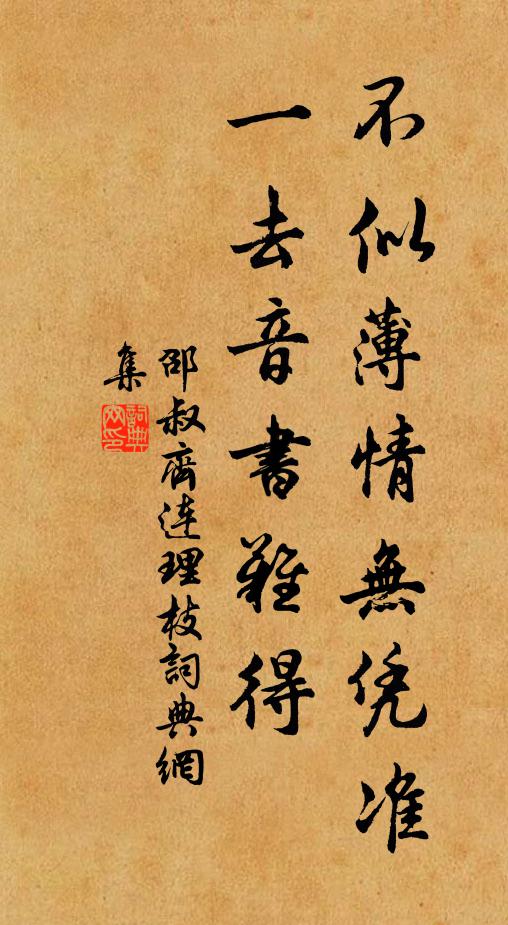 不似薄情無凭准
一去音書難得
邵叔齊連理枝詞典網
集
詞典
网印